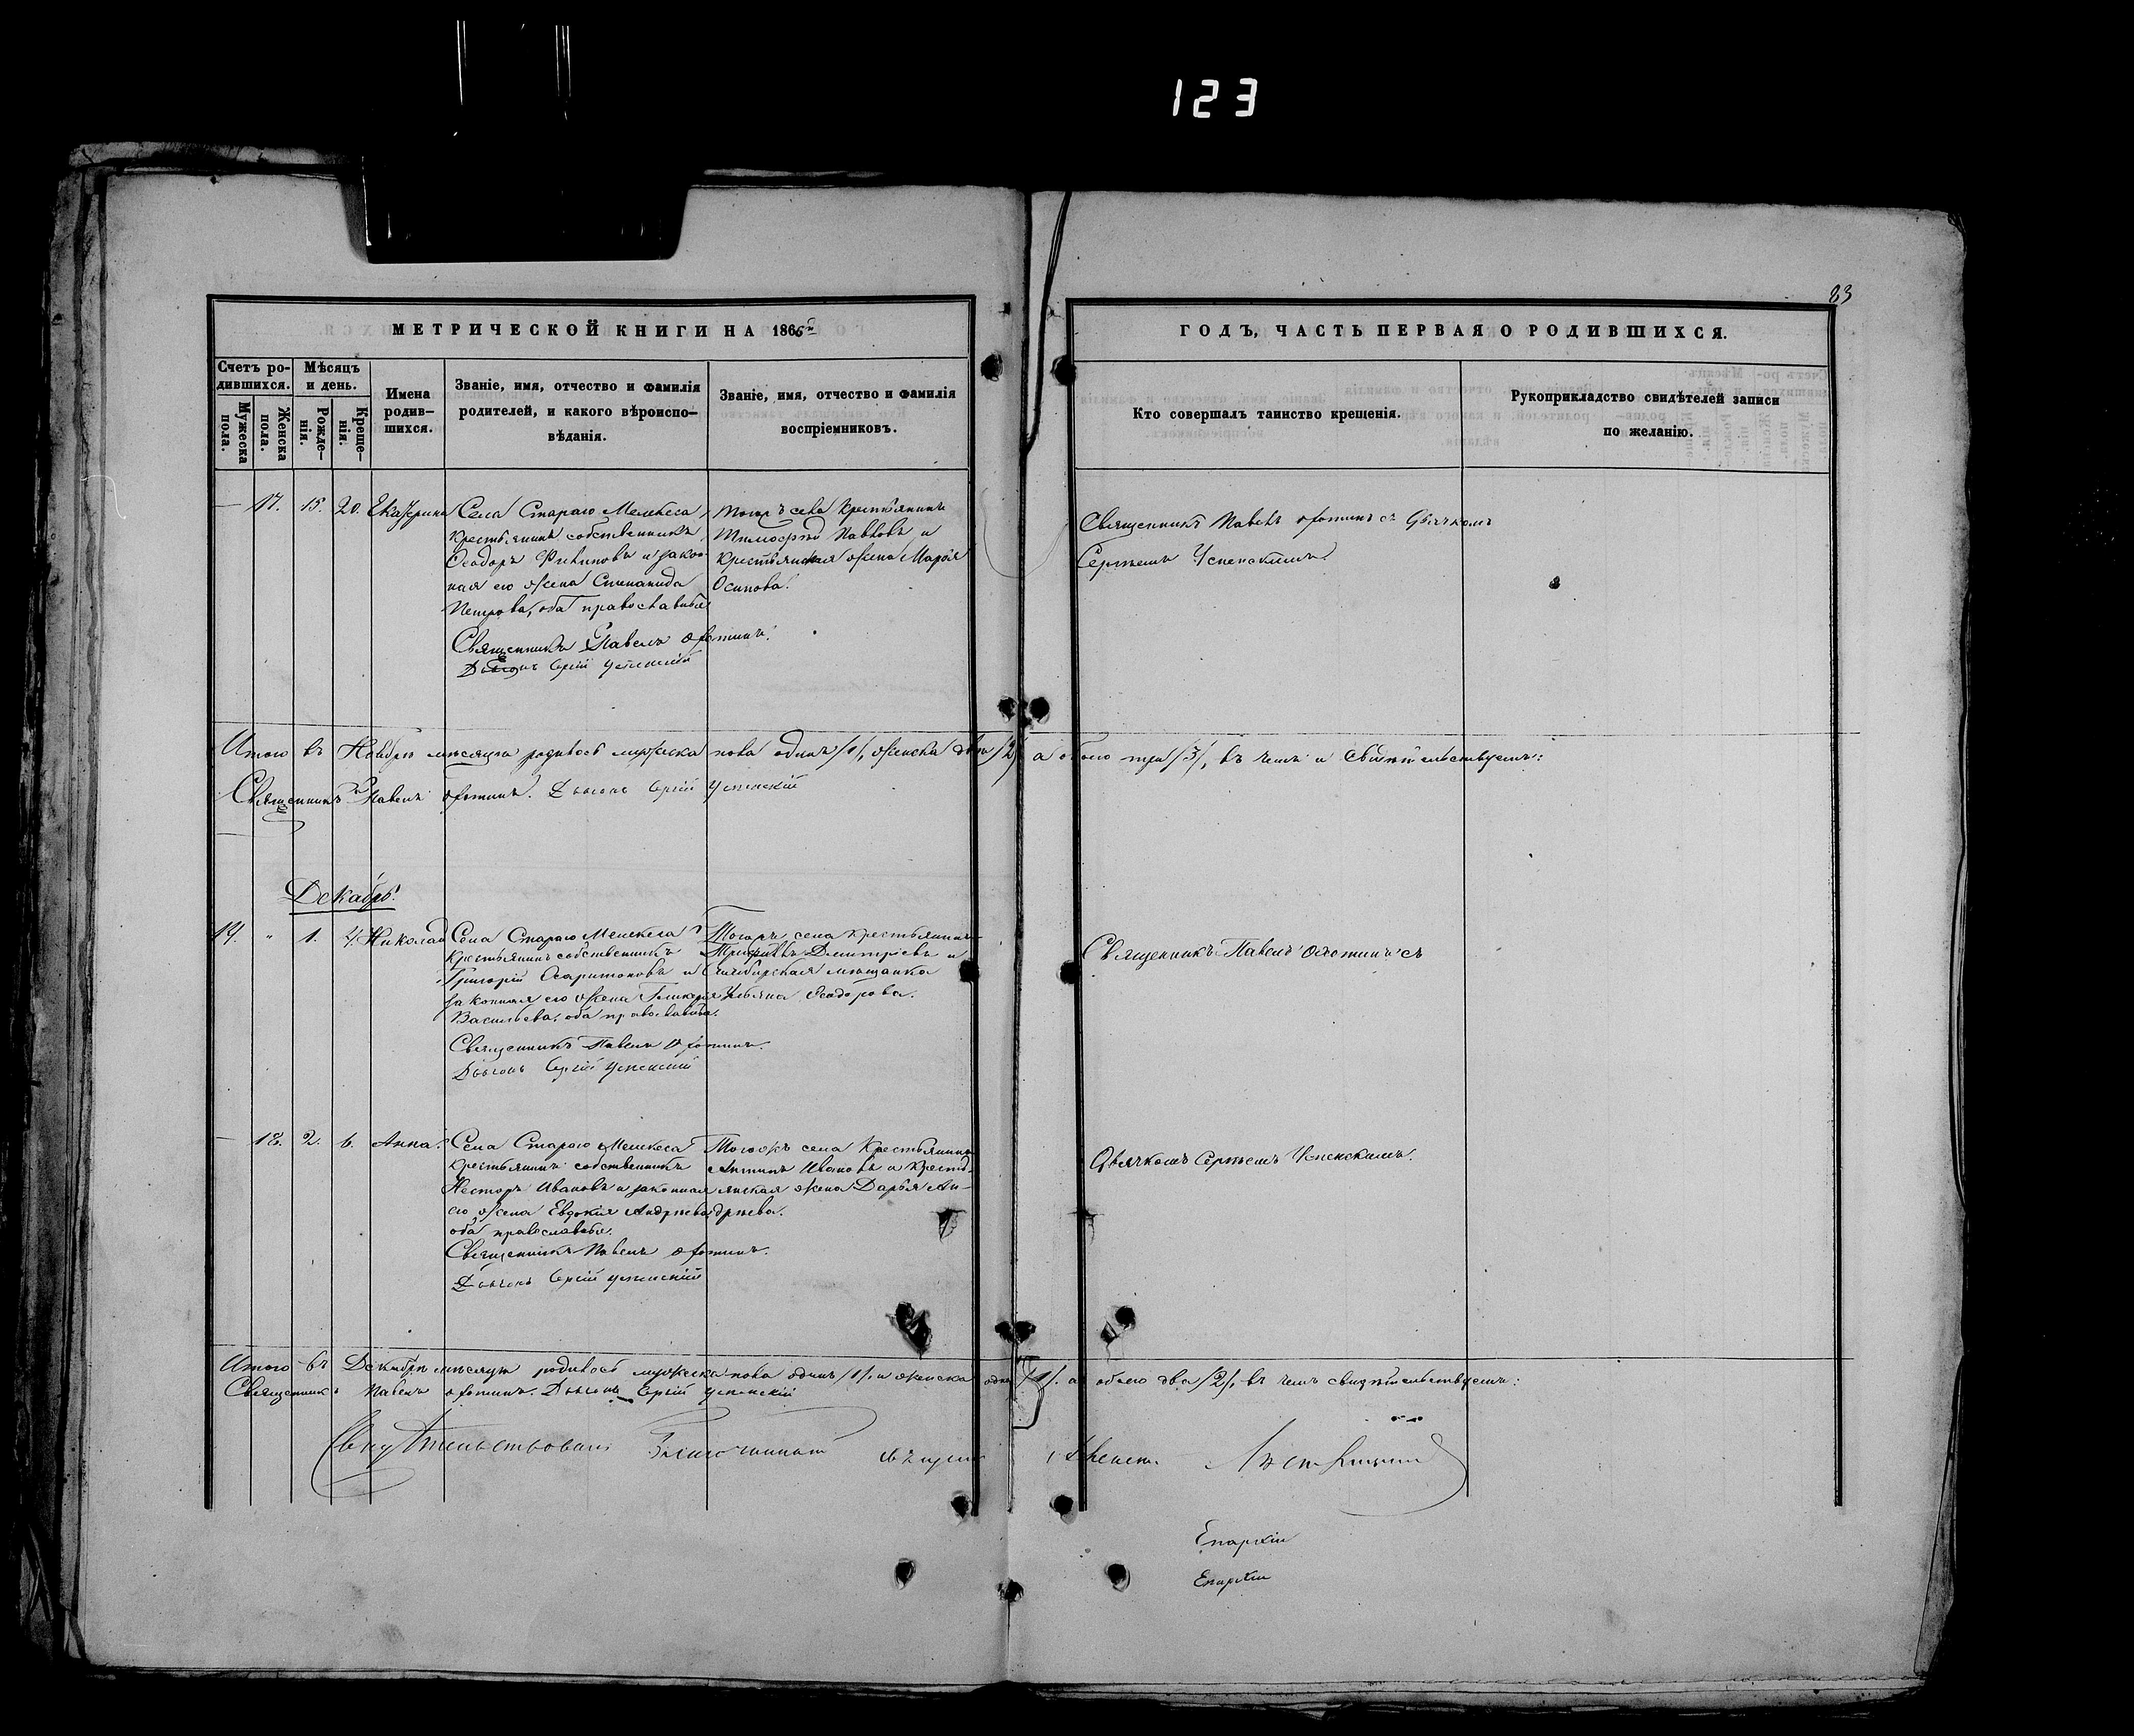 123
83
МЕТРИЧЕСКОЙ КНИГИ НА 1866
Счетъ ро-
дившихся.
Мужеска пола.
Женска пола.
Мѣсяцъ
и день.
Рожде-
нія.
Креще-
нія.
Имена
родив-
шихся.
Званіе, имя, отчество и фамилія
родителей, и какого вѣроиспо-
вѣданія.
Званіе, имя, отчество и фамилія
воспріемниковъ.
ГОДЪ, ЧАСТЬ ПЕРВАЯ О РОДИВШИХСЯ.
Кто совершалъ таинство крещенія.
Рукоприкладство свидѣтелей записи
по желанію.
— 17. 15. 20. Екатерина
Села Стараго Мелекеса
крестьянинъ собственникъ
Ѳеодоръ Филиповъ и закон
ная его жена Степанида
Петрова, оба православные
Священникъ Павелъ Охотинъ.
Дьячокъ Сергій Успенскій
Тогожъ села крестьянинъ
Тимоѳей Павловъ и
крестьянская жена Марья
Осипова.
Священникъ Павелъ Охотинъ съ Дьячкомъ
Сергѣемъ Успенскимъ.
Итого въ Ноябрѣ мѣсяцѣ родилось мужеска пола одинъ /1/, женска два /2/ а обоего три /3/, въ чемъ и свидѣтельствуемъ:
Священникъ Павелъ Охотинъ. Дьячокъ Сергій Успенскій
Декабрь.
14. " 1. 4. Николай
Села Стараго Мелекеса
крестьянинъ собственникъ
Григорій Харитоновъ и
законная его жена Гликерія
Васильева, оба православные.
Священникъ Павелъ Охотинъ.
Дьячокъ Сергій Успенскій
Тогожъ села крестьянинъ
Дмитріевъ и
Симбирская мѣщанка
Ульяна Ѳеодорова.
Священникъ Павелъ Охотинъ съ
— 18. 2. 6. Анна.
Села Стараго Мелекеса
крестьянинъ собственникъ
Несторъ Ивановъ и законная
его жена Евдокія Андрѣева,
оба православные.
Священникъ Павелъ Охотинъ.
Дьячокъ Сергій Успенскій
Тогожъ села Крестьянинъ
Антипъ Ивановъ и кресть-
янская жена Дарья Ан-
дрѣева.
Дьячкомъ Сергѣемъ Успенскимъ.
Итого въ Декабрѣ мѣсяцѣ родилось мужеска пола одинъ /1/. и женска одна /1/. а обоего два /2/, въ чемъ свидѣтельствуемъ:
Священникъ Павелъ Охотинъ. Дьячокъ Сергій Успенскій
Свидѣтельствовалъ Благочинный
Епархіи
Епархіи